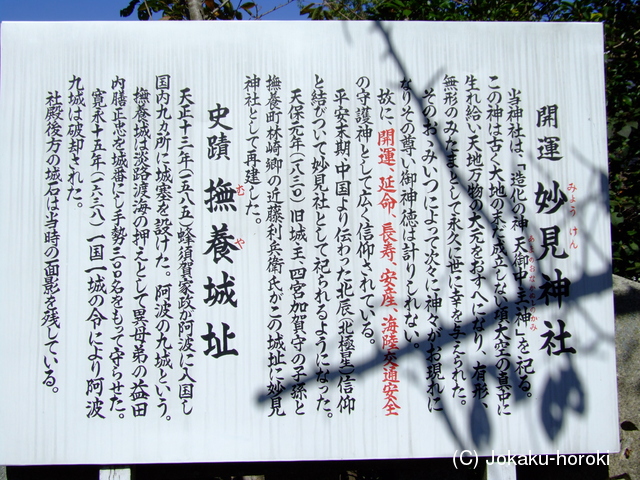 開運 妙見神社
みょう けん
当神社は、「造化の神、天御中主神」を祀る。
あめのみなかぬしのおおかみ
この神は古く大地の未だ成立しない頃大空の真中に
生れ給い天地万物の大元をおすへになり、有形、
無形のみたまとして永久に世に幸を与えられた。
そのおゝみいつによって次々に神々がお現れに
なりその尊い御神徳は計りしれない。
故に、開運、延命、長寿、安産、海陸交通安全
の守護神として広く信仰されている。
平安末期、中国より伝わった北辰(北極星)信仰
と結びついて妙見社として祀られるようになった。
天保元年(一八三〇)旧城主、四宮加賀守の子孫と
撫養町林崎郷の近藤利兵衛氏がこの城址に妙見
神社として再建した。
史蹟 撫養城址
むや
天正十三年(一五八五)蜂須賀家政が阿波に入国し
国内九ヵ所に城塞を設けた。阿波の九城という。
撫養城は淡路渡海の押えとして異母弟の益田
内膳正忠を城番にし手勢三〇〇名をもって守らせた。
寛永十五年(一六三八)一国一城の令により阿波
九城は破却された。
社殿後方の城石は当時の面影を残している。
(C) Jokaku-horoki